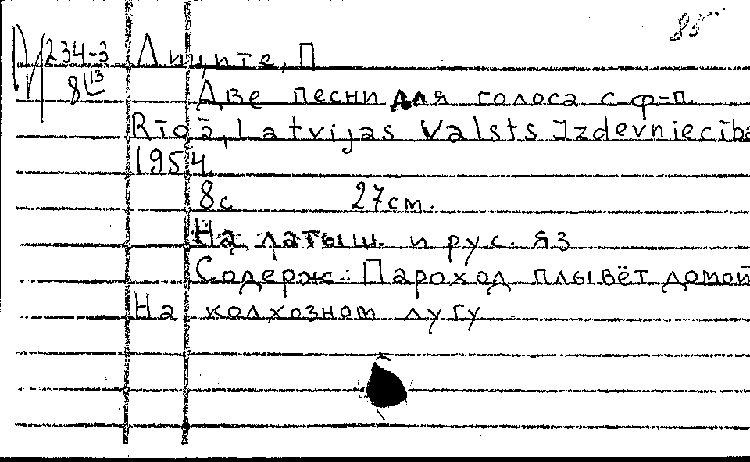 85
234-3 Лиците, П
8
Две песни для голоса с ф-п.
Rīgā, Latvijas Valsts Izdevniecība
1954
8с 27см.
На латыш. и рус. яз
Содерж.: Пароход плывёт домой
На колхозном лугу